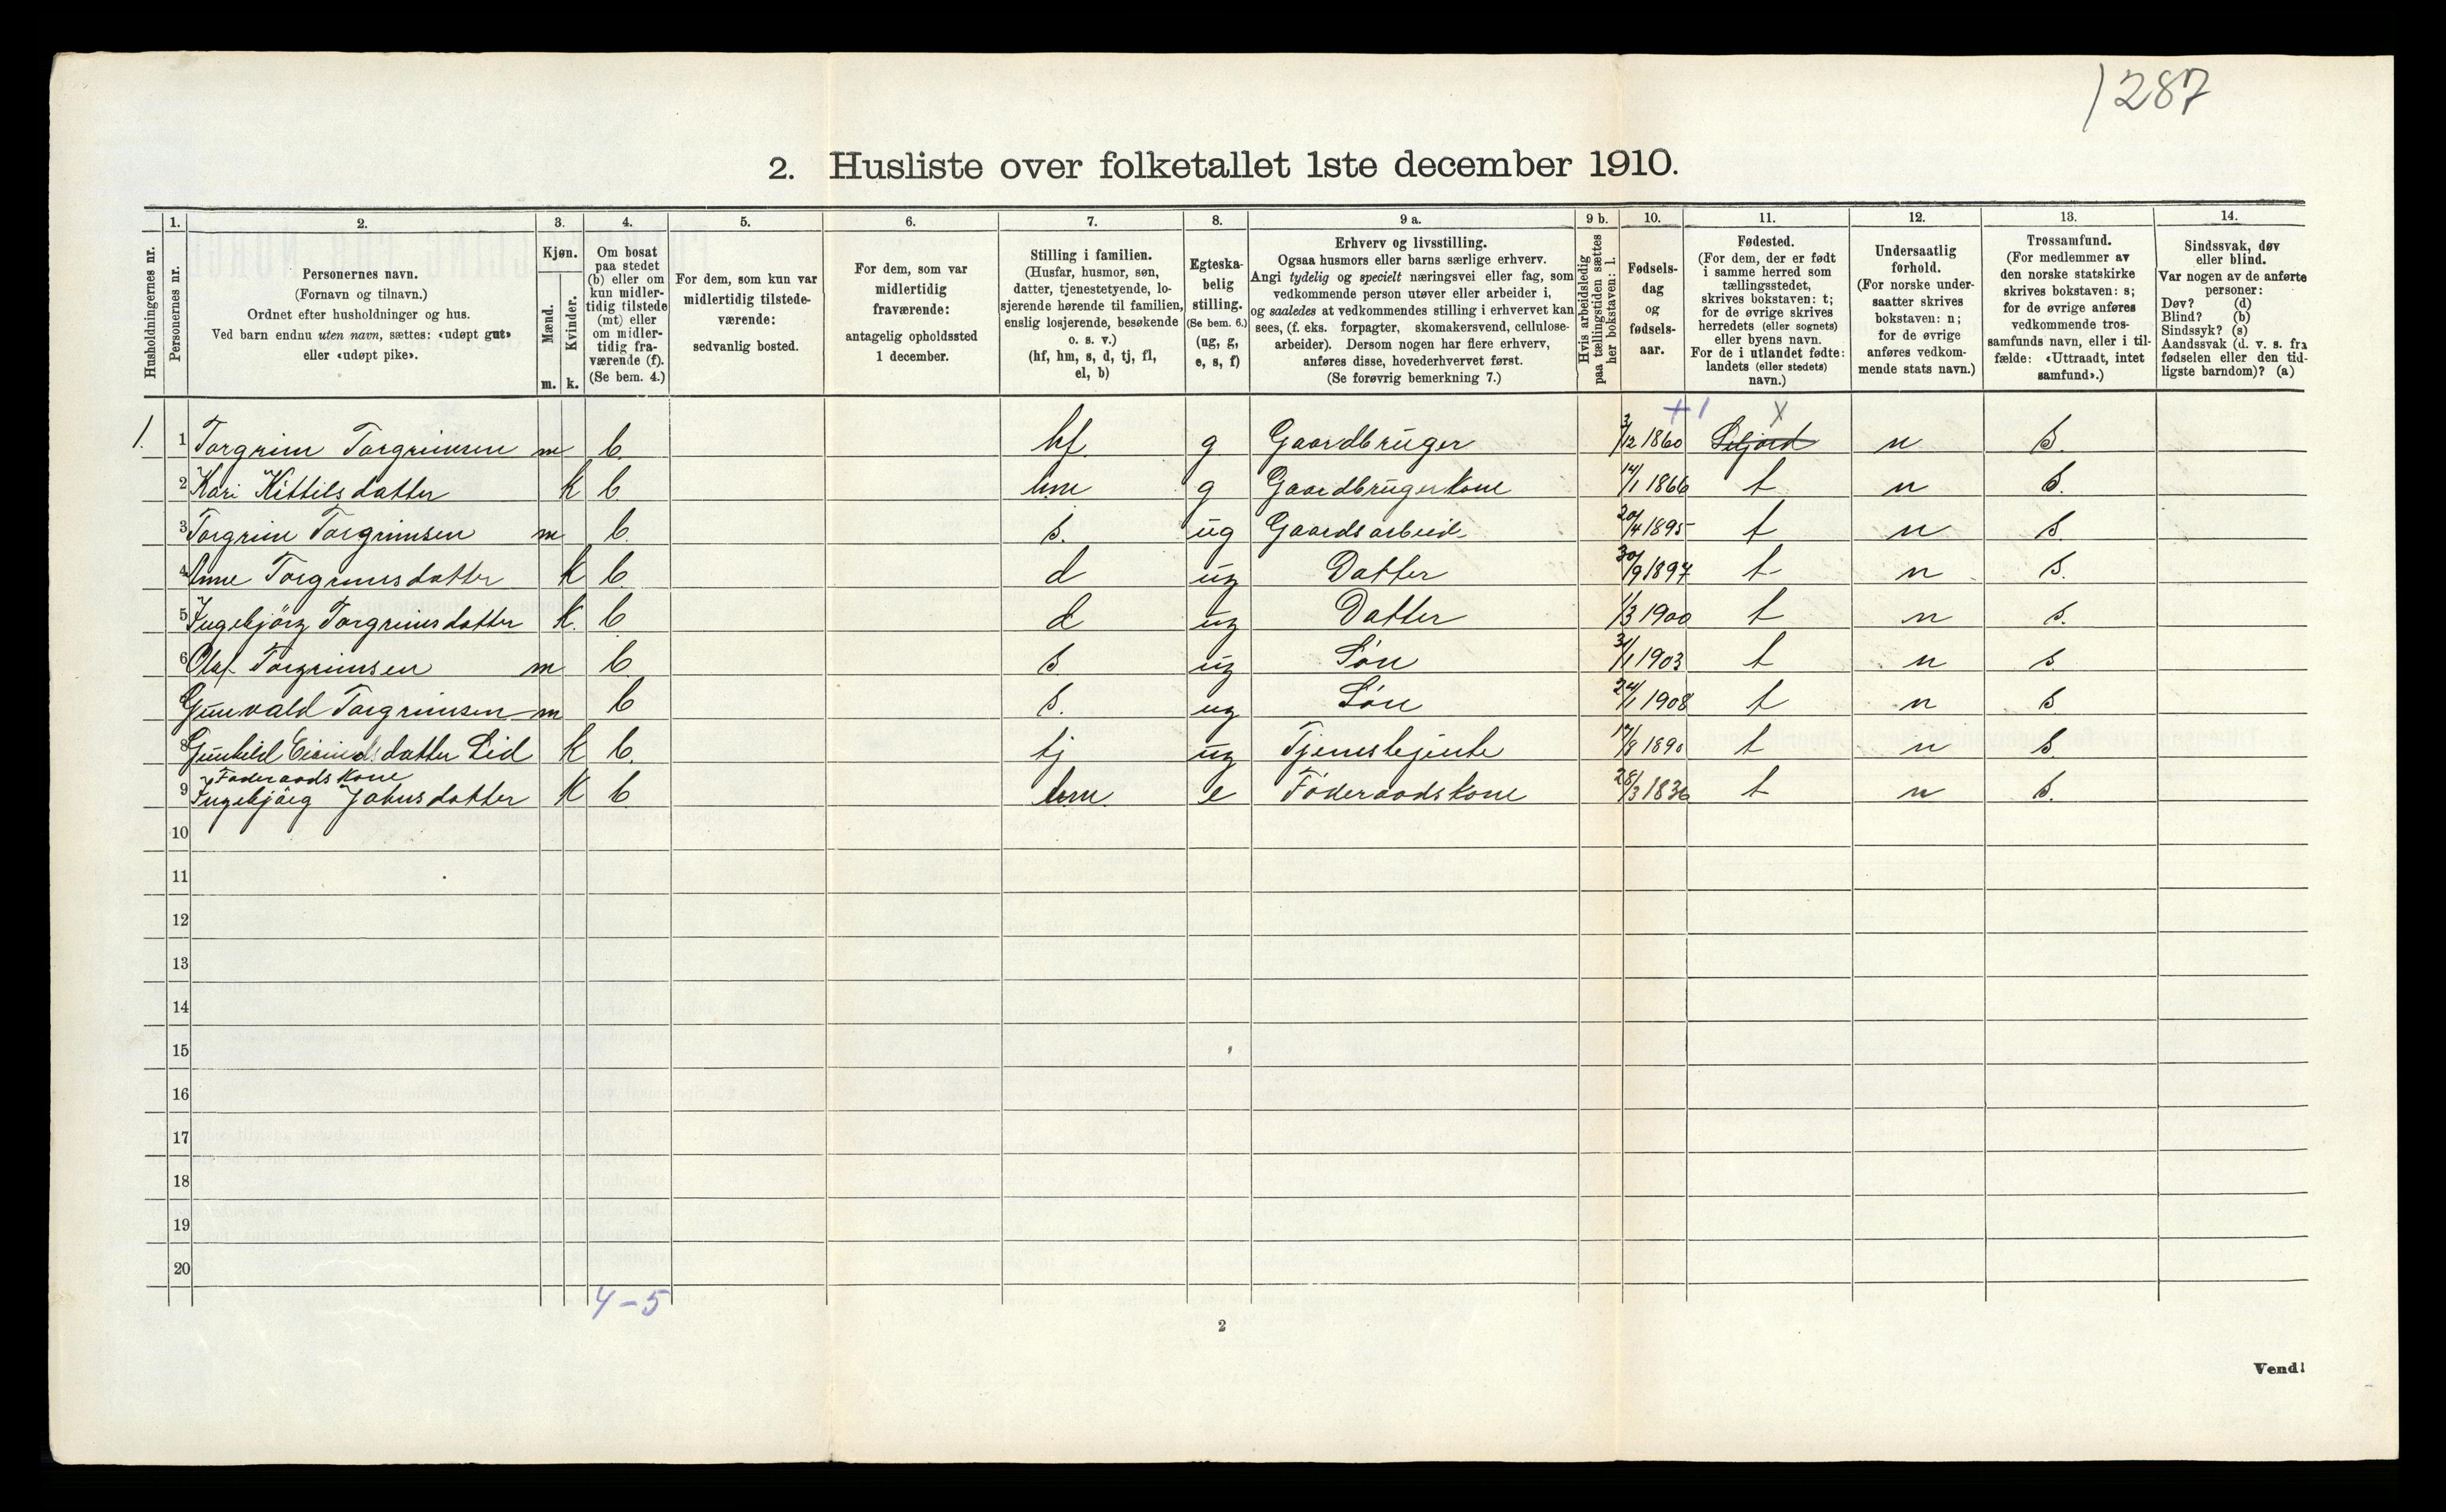 1287
2. Husliste over folketallet 1ste december 1910.
Husholdningernes nr.
1.
Personernes nr.
2.
Personernes navn.
(Fornavn og tilnavn.)
Ordnet efter husholdninger og hus.
Ved barn endnu uten navn, sættes: «udøpt gut»
eller «udøpt pike».
3.
Kjøn.
Mænd.
Kvinder.
m. k.
4.
Om bosat
paa stedet
(b) eller om
kun midler-
tidig tilstede
(mt) eller
om midler-
tidig fra-
værende (f).
(Se bem. 4.)
5.
For dem, som kun var
midlertidig tilstede-
værende:
sedvanlig bosted.
6.
For dem, som var
midlertidig
fraværende:
antagelig opholdssted
1 december.
7.
Stilling i familien.
(Husfar, husmor, søn,
datter, tjenestetyende, lo-
sjerende hørende til familien,
enslig losjerende, besøkende
o. s. v.)
(hf, hm, s, d, tj, fl,
el, b)
8.
Egteska-
belig
stilling.
(Se bem. 6.)
(ug, g,
e, s, f)
9 a.
Erhverv og livsstilling.
Ogsaa husmors eller barns særlige erhverv.
Angi tydelig og specielt næringsvei eller fag, som
vedkommende person utøver eller arbeider i,
og saaledes at vedkommendes stilling i erhvervet kan
sees, (f. eks. forpagter, skomakersvend, cellulose-
arbeider). Dersom nogen har flere erhverv,
anføres disse, hovederhvervet først.
(Se forøvrig bemerkning 7.)
9 b.
Hvis arbeidsledig
paa tællingstiden sættes
her bokstaven: l.
10.
Fødsels-
dag
og
fødsels-
aar.
11.
Fødested.
(For dem, der er født
i samme herred som
tællingsstedet,
skrives bokstaven: t;
for de øvrige skrives
herredets (eller sognets)
eller byens navn.
For de i utlandet fødte:
landets (eller stedets)
navn.)
12.
Undersaatlig
forhold.
(For norske under-
saatter skrives
bokstaven: n;
for de øvrige
anføres vedkom-
mende stats navn.)
13.
Trossamfund.
(For medlemmer av
den norske statskirke
skrives bokstaven: s;
for de øvrige anføres
vedkommende tros-
samfunds navn, eller i til-
fælde: «Uttraadt, intet
samfund».)
14.
Sindssvak, døv
eller blind.
Var nogen av de anførte
personer:
Døv? (d)
Blind? (b)
Sindssyk? (s)
Aandssvak (d. v. s. fra
fødselen eller den tid-
ligste barndom)? (a)
+1 X
1. 1 Torgrim Torgrimsen m b hf g Gaardbrüger 3/12 1860 Seljord n s.
2 Kari Kittilsdatter k b hm g Gaardbrügerkone 14/1 1866 t n s.
3 Torgrim Torgrimsen m b s. ug Gaardsarbeid 20/4 1895 t n s.
4 Anne Torgrimsdatter k b d ug Datter 30/9 1897 t n s.
5 Ingebjörg Torgrimsdatter k b d ug Datter 1/3 1900 t n s.
6 Olaf Torgrimsen m b s ug Sön 31/1 1903 t n s
Gunvald Torgrimsen m b s. ug Sön 24/1 1908 t n s
8 Gunhild Eivindsdatter Lid k b. tj ug Tjenestejente 17/8 1890 t n s.
Föderaadskone
9 Ingebjörg Johnsdatter k b hm e Föderaadskone 28/3 1836 t n s.
10
11
12
13
14
15
16
17
18
19
20
4-5
2
Vend!